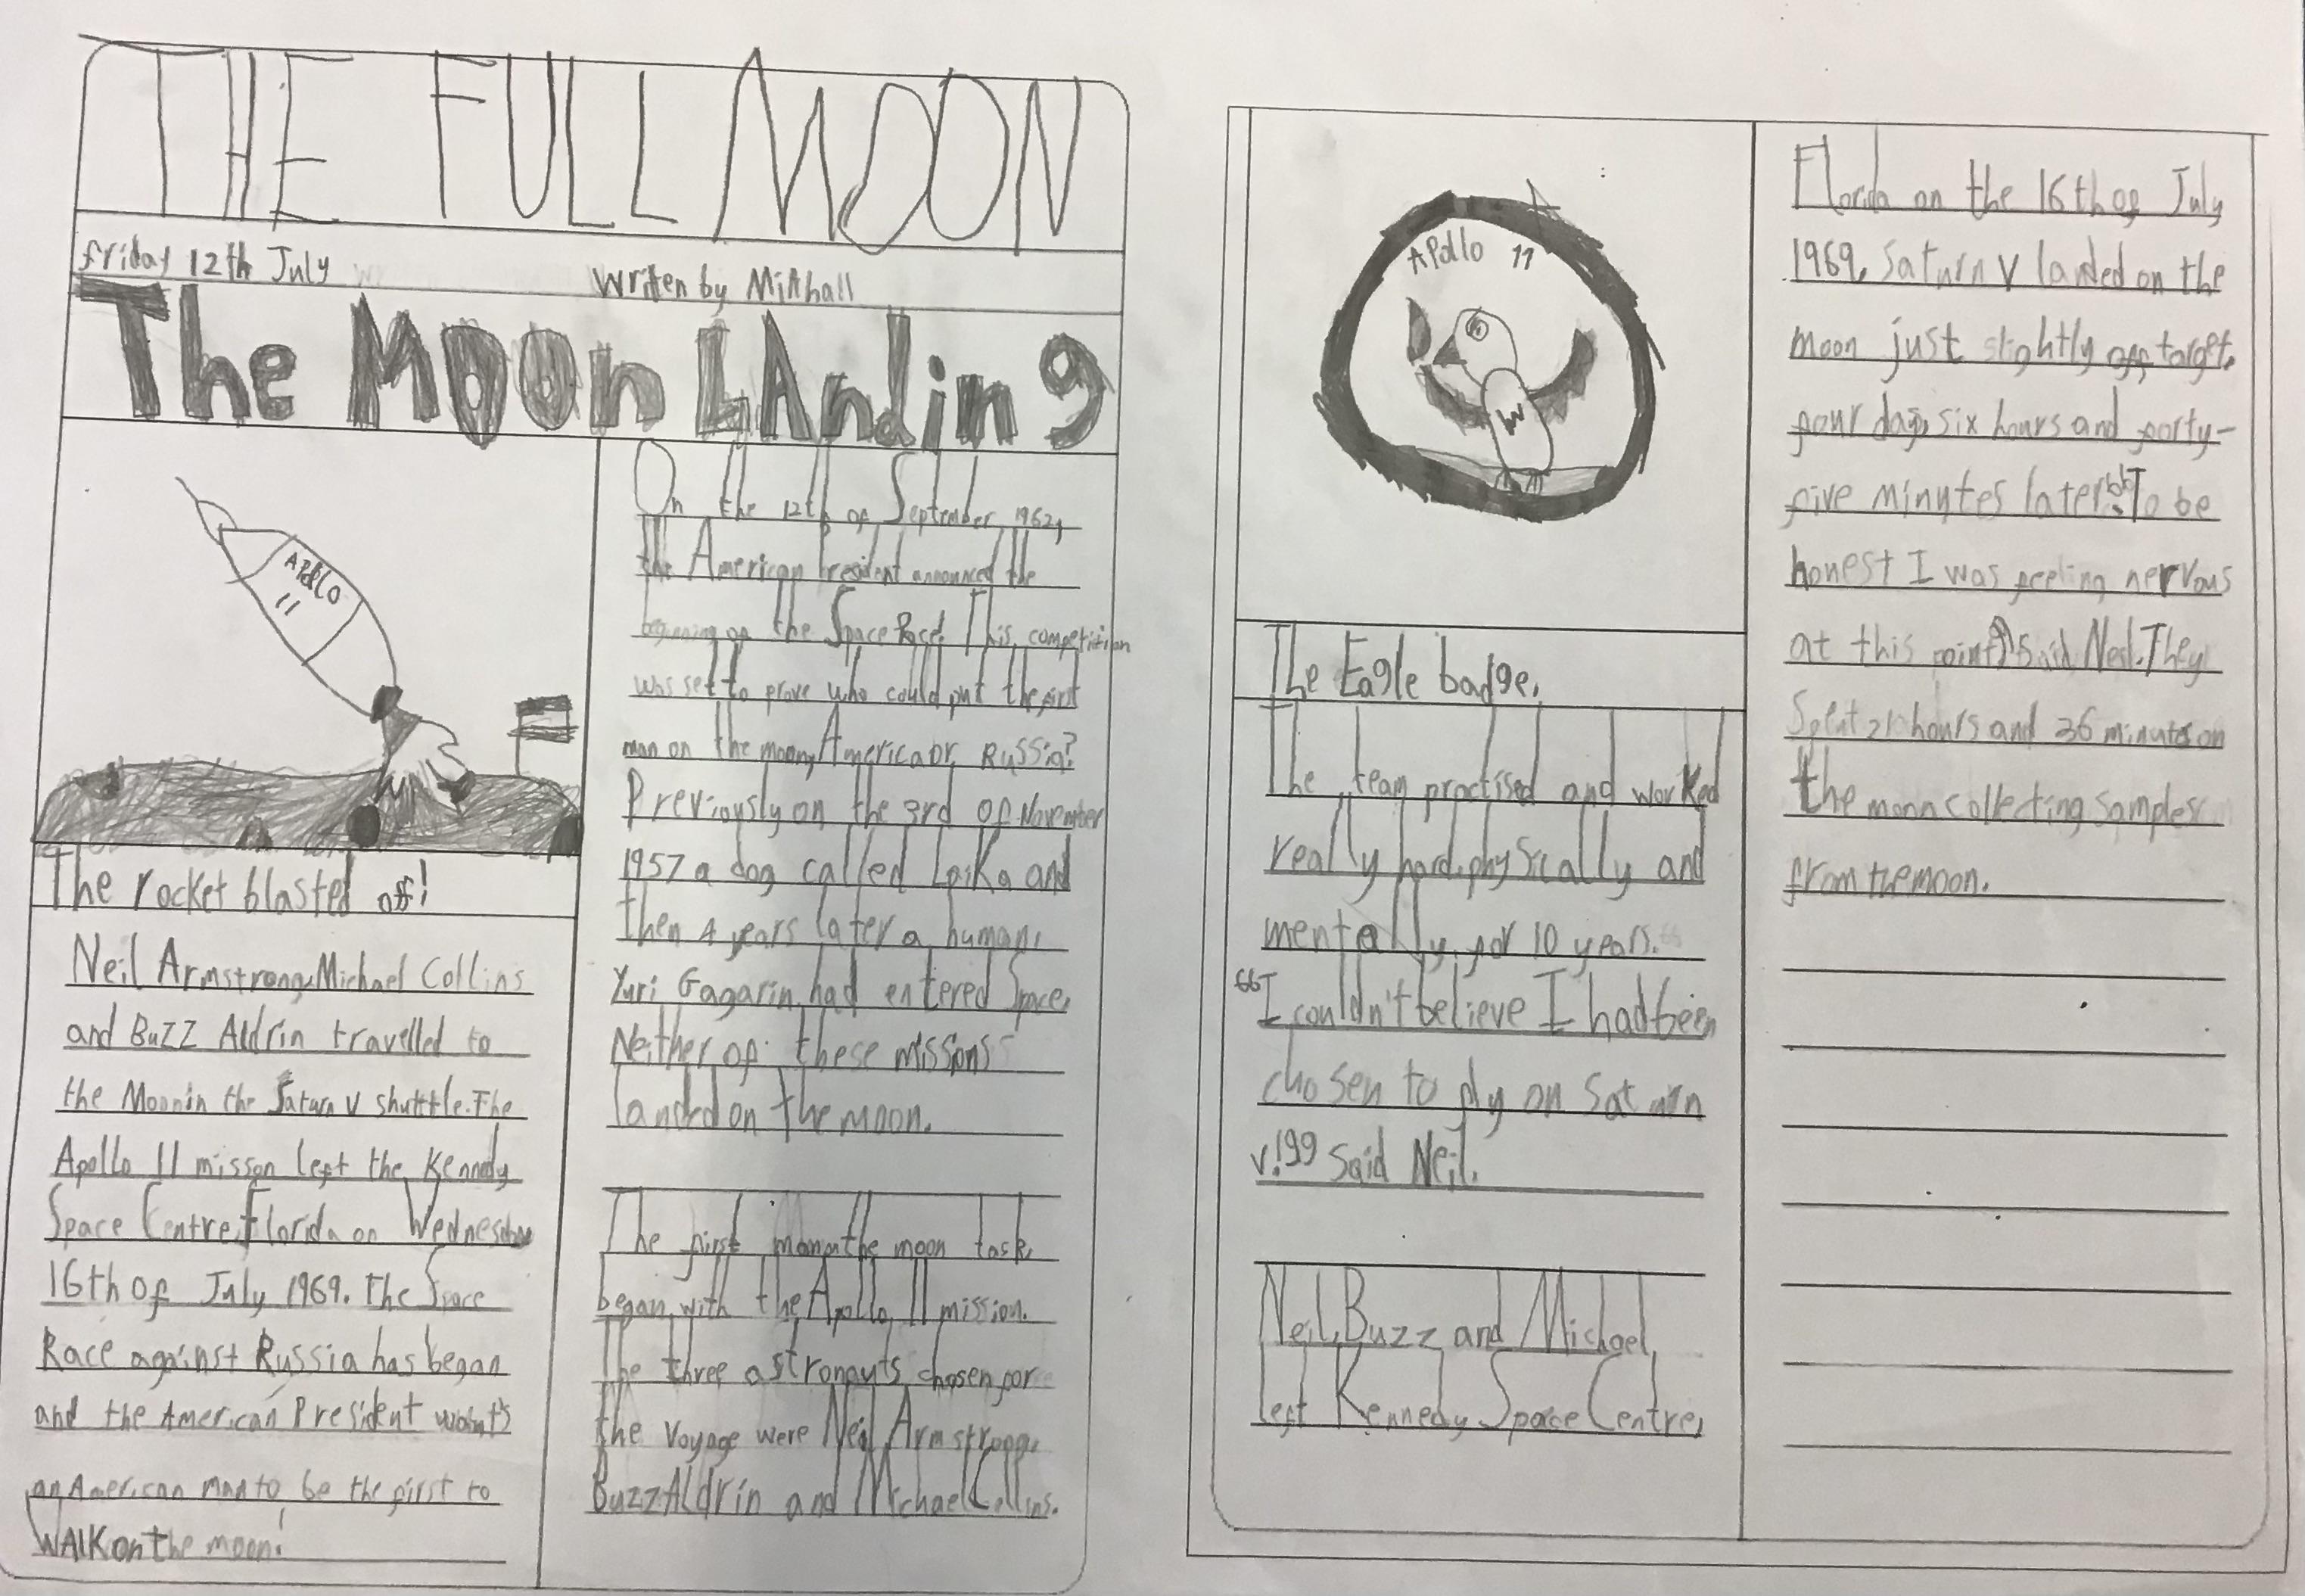 THE FULL MOON
friday 12th July
writen by Mikhall
The MOOn LAnding
APOLLO
11
The rocket blasted off!
Neil Armstrong, Michael Collins
and BuZZ Aldrin travelled to
the Moon in the Saturn V shutttle. The
Apollo 11 misson left the Kennedy
Space Centre, Florida on Wednesday
16th of July 1969. The Space
Race against Russia has began
and the American President wants
an American man to be the first to
WAlK on the moon!
On the 12th of September, 1962,
the American President announced the
beginning of the Space Race. This competition
was set to prove who could put the first
man on the moon, America or RUSSia?
Previously on the 3rd of November
1957 a dog called Laika and
then 4 years later a human,
Yuri Gagarin, had entered Space.
Neither of these missions
landed on the moon.
The first man on the moon task,
began with the Apollo 11 mission.
The three astronauts chosen for
the voyage were Neil Armstrong,
BuzzAldrin and Michael Collins.
APollo 11
The Eagle badge.
The team practised and worked
really hard, physically and
mentally, for 10 years.
“I couldn't believe I had been
chosen to fly on Saturn
V!” Said Neil.
Neil, Buzz and Michael
left Kennedy Space Centre,
Florida on the 16th of July
1969. Saturn V landed on the
moon just slightly off target,
four days, six hours and forty-
five minutes later. “To be
honest I was feeling nervous
at this point” Said Neil. They
Spent 21 hours and 36 minutes on
the moon collecting samples
from the moon.